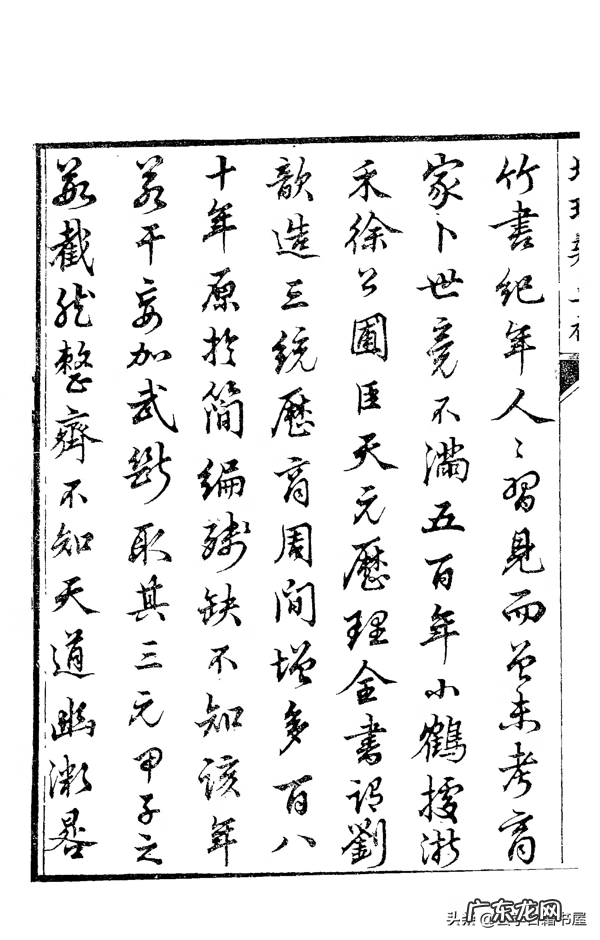 竹書紀年人〻習見而曾未考商
家卜世竟不滿五百年小鶴據浙
禾徐公圃臣天元歷理全書謂劉
歆造三統歷商周間增多百八
十年原於簡編殘缺不知該年
若干妄加武斷取其三元甲子之
數截然整齊不知天道幽渺晷
广东龙网
头条
古籍书屋